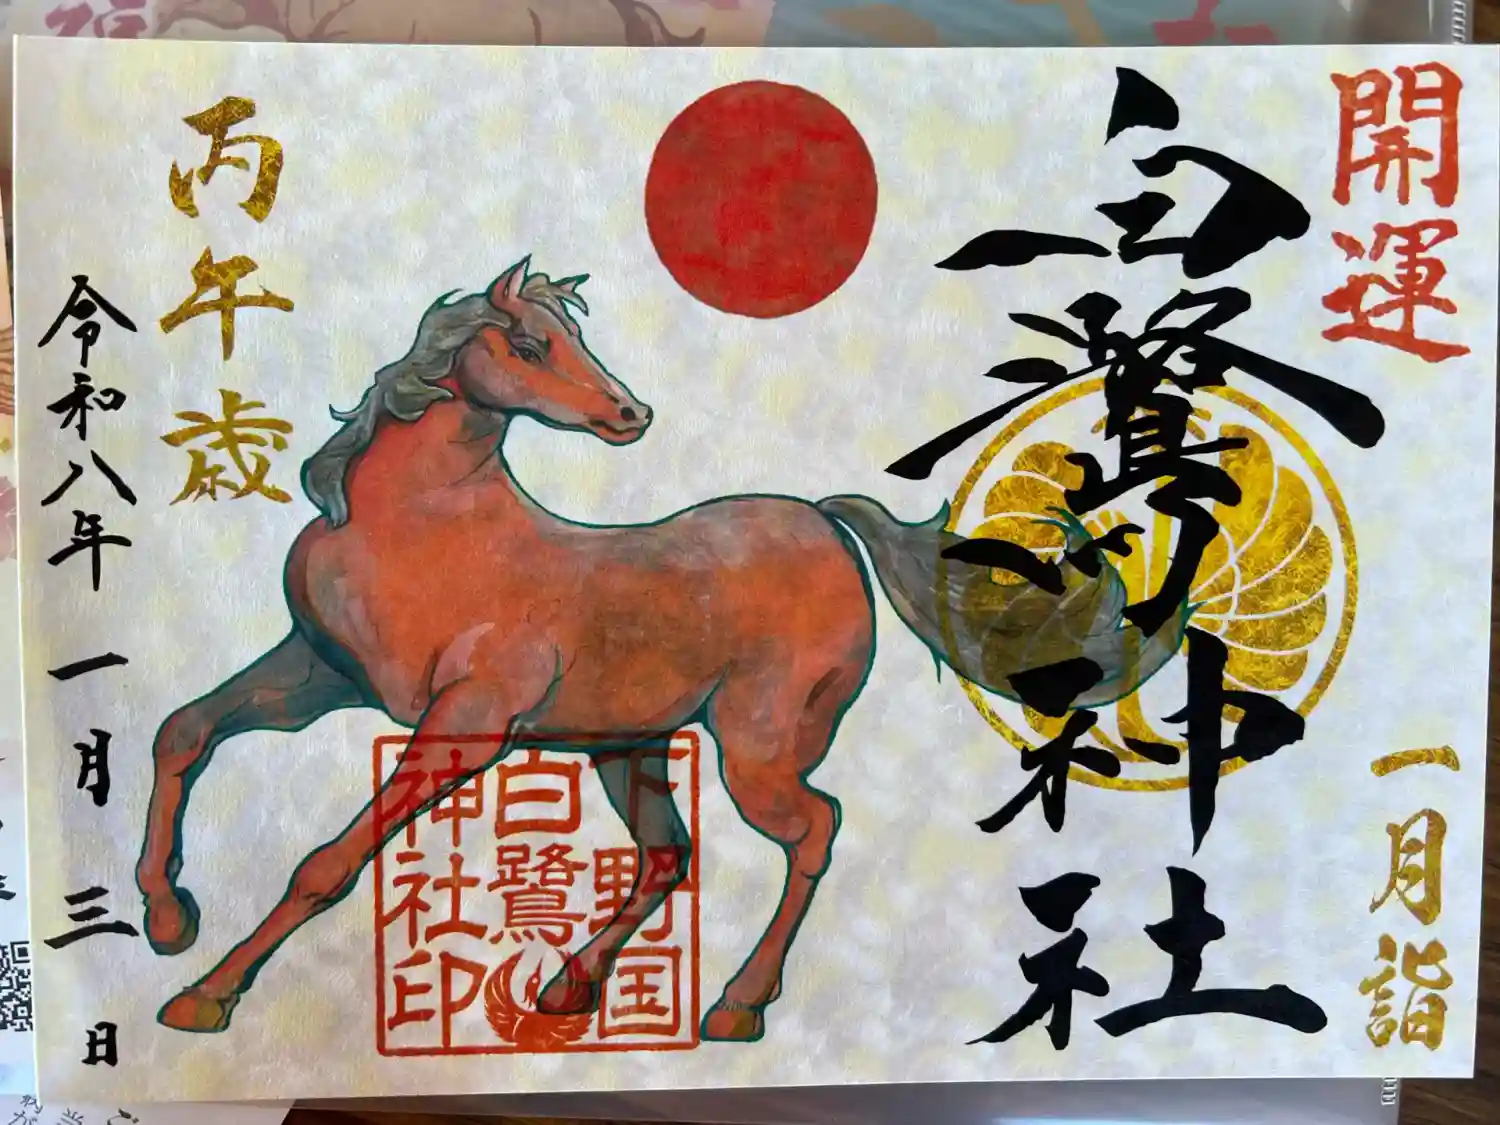 開運
一月詣
白鷺神社
下野国
白鷺
神社印
丙午歳
令和八年一月三日